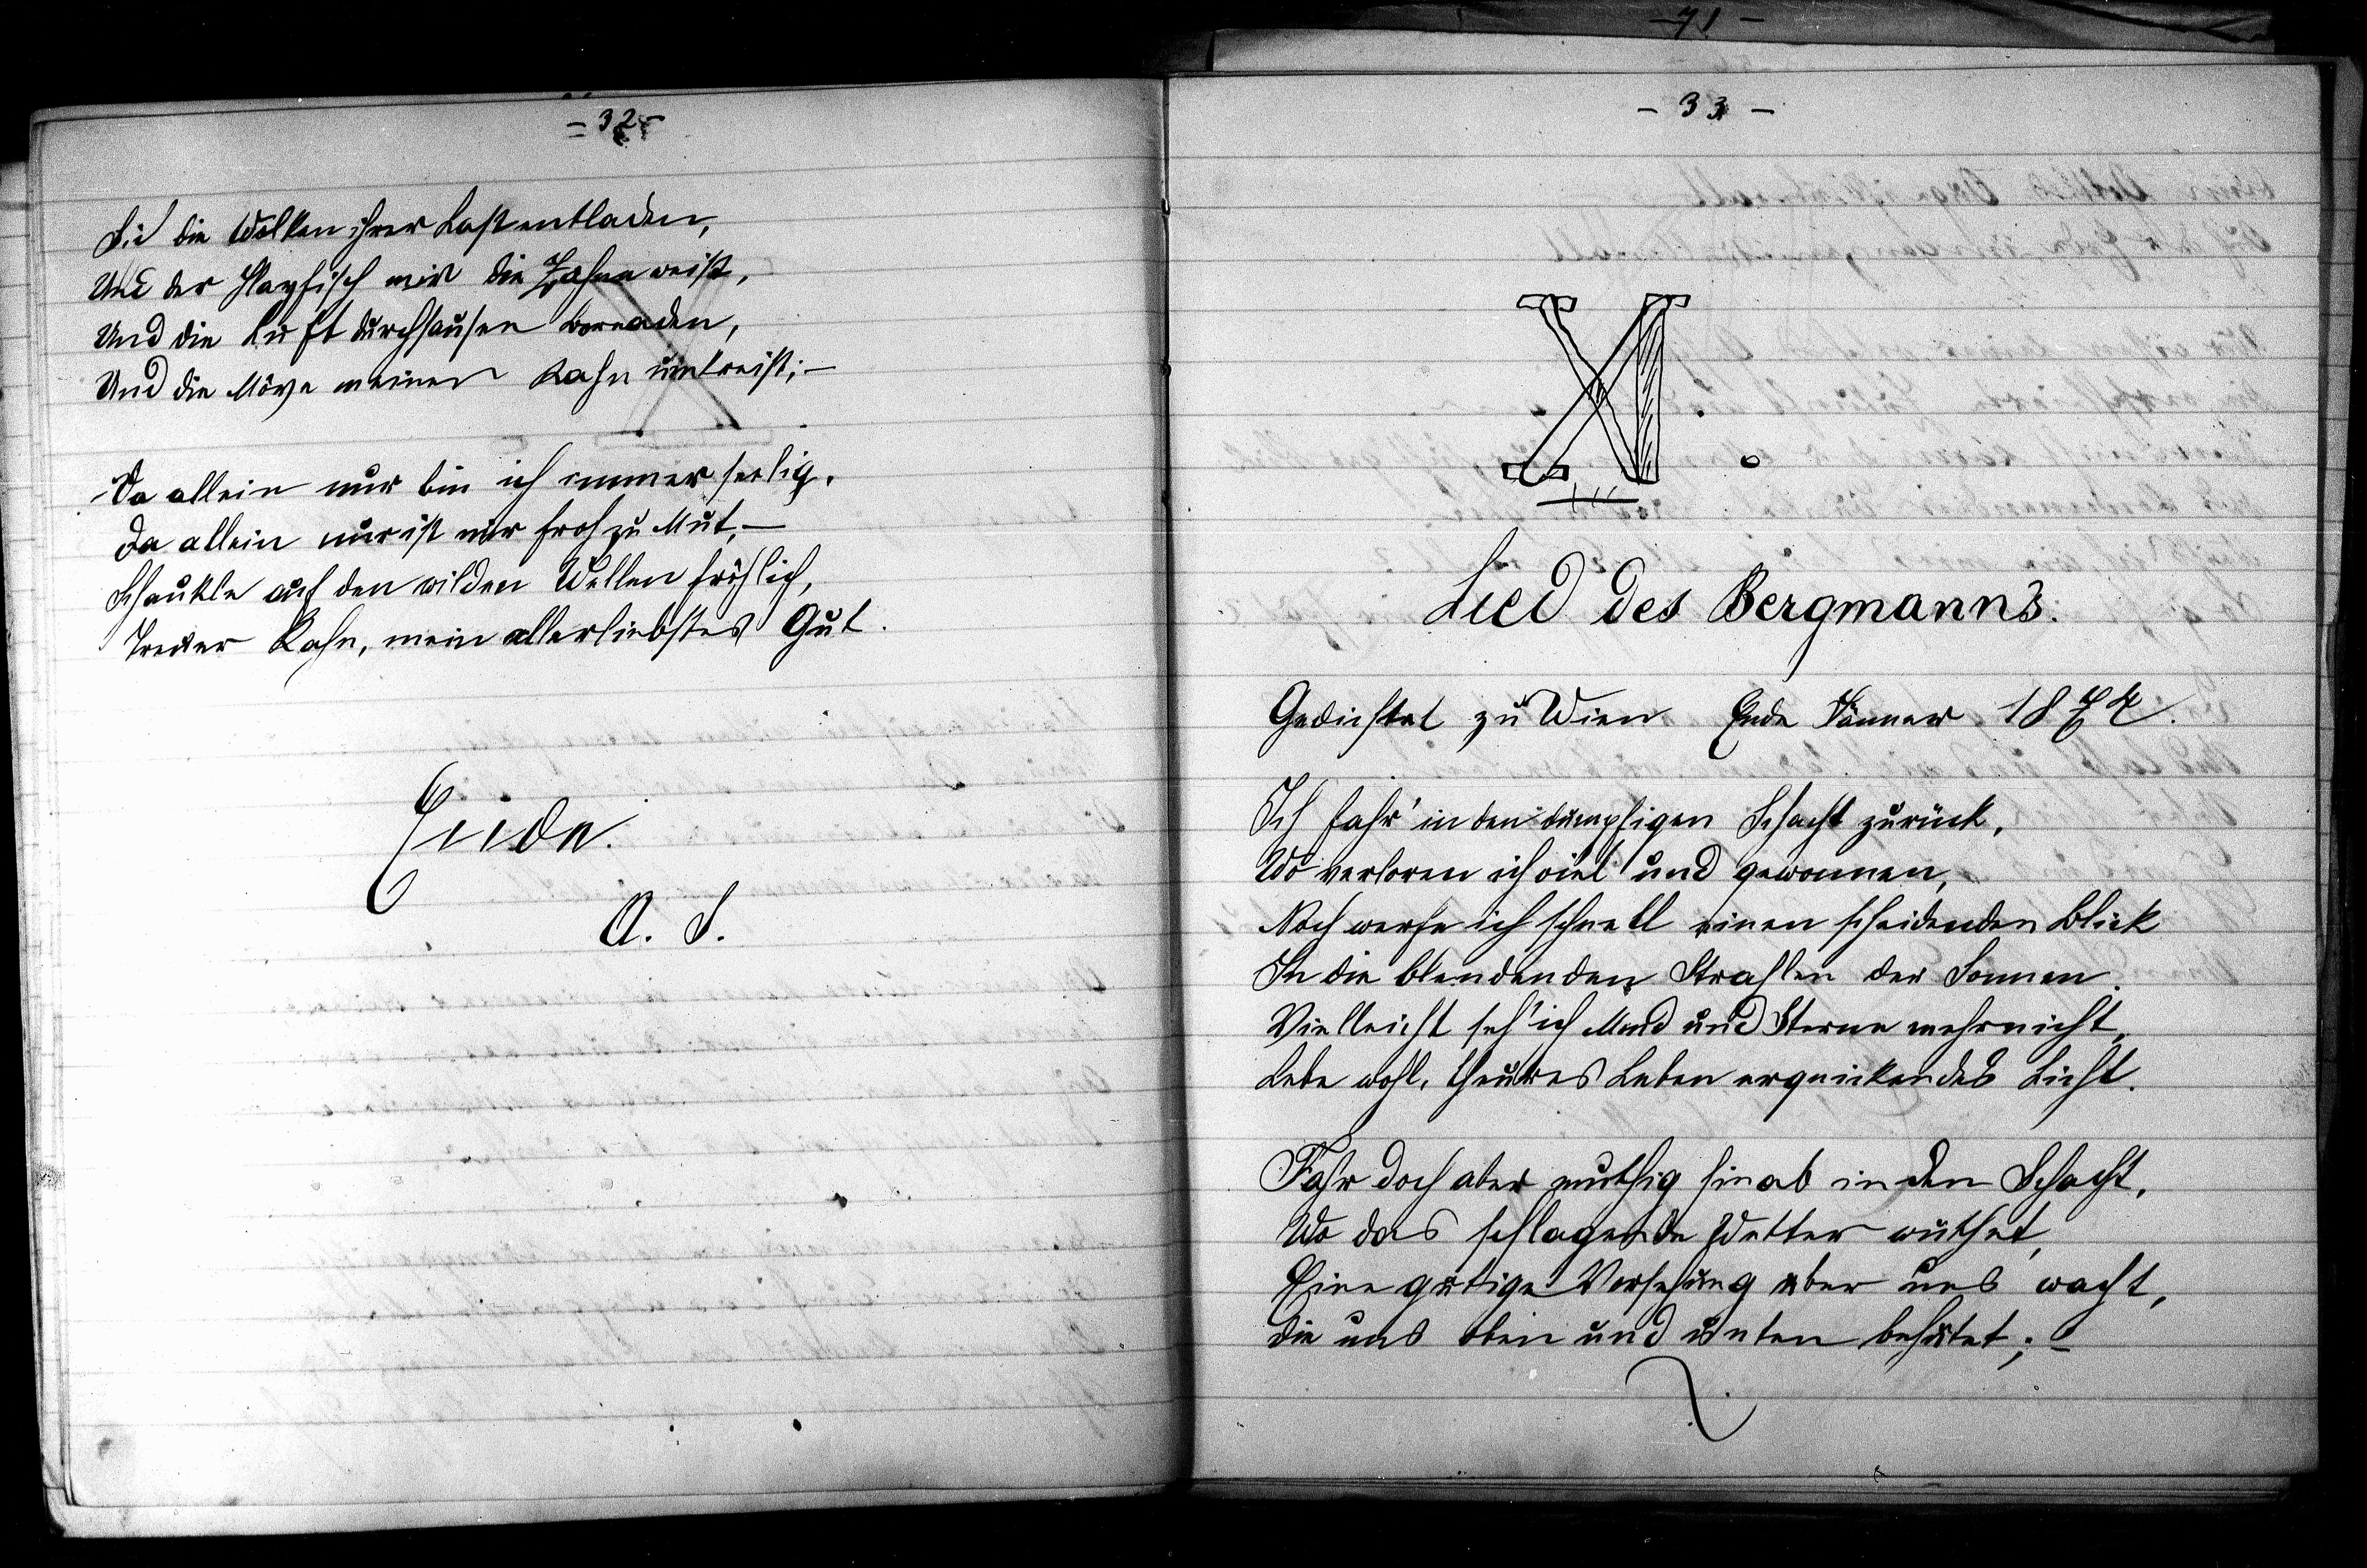 - 32 -
Sich die Wolken ihrer Last entladen,
Und der Hayfisch mir die Zähne weist,
Und die Luft durchsausen Boreaden,
Und die Möve meinen Kahn umkreist; -
Da allein nur bin ich immer seelig,
Da allein nur ist mir froh zu Mut, -
Schaukle auf den wilden Wellen fröhlich,
Treuer Kahn, mein allerliebstes Gut.
Ende.
A. S.
- 71 -
- 33 -
XI.
Lied des Bergmanns.
Gedichtet zu Wien Ende Jänner 1874.
Ich fahr' in den dumpfigen Schacht zurück,
Wo verloren ich viel und gewonnen,
Noch werfe ich schnell einen scheidenden Blick
In die blendenden Strahlen der Sonnen.
Vielleicht seh' ich Mond und Sterne mehr nicht,
Lebe wohl, theures Leben erquickendes Licht.
Fahr doch aber muthig hinab in den Schacht,
Wo das schlagende Wetter wüthet,
Eine gütige Vorsehung über uns wacht,
Die uns oben und unten behütet; -